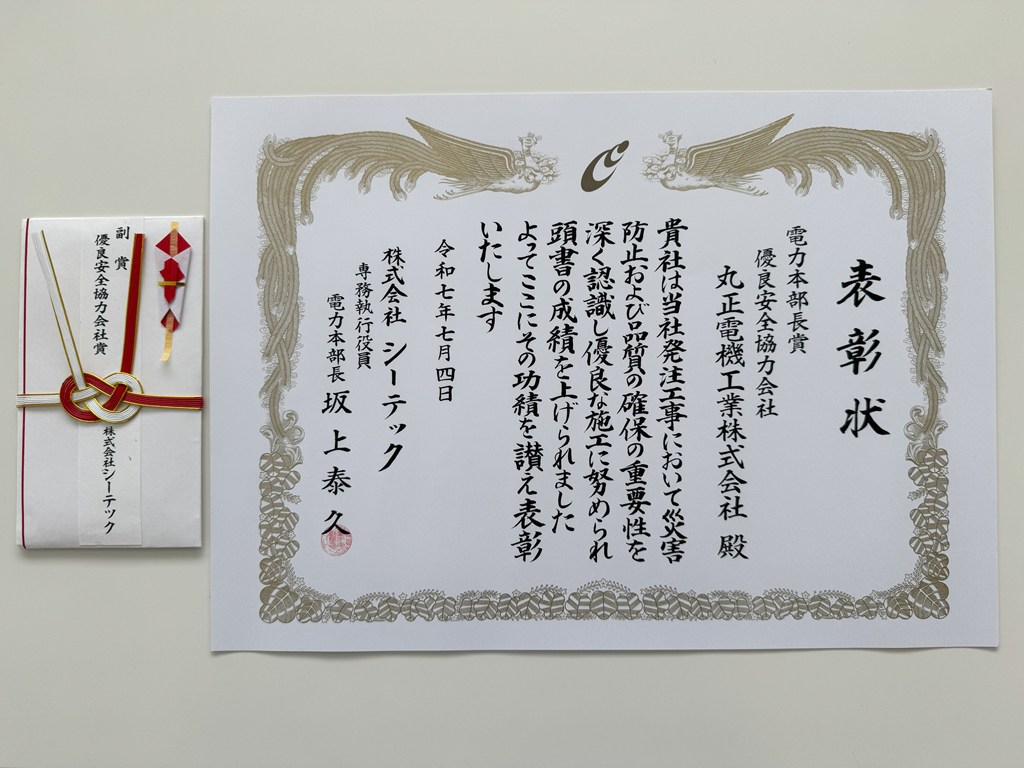 表彰状
電力本部長賞
優良安全協力会社
丸正電機工業株式会社 殿
貴社は当社発注工事において災害
防止および品質の確保の重要性を
深く認識し優良な施工に努められ
頭書の成績を上げられました
よってここにその功績を讃え表彰
いたします
令和七年七月四日
株式会社 シーテック
専務執行役員
電力本部長 坂上泰久
副賞
優良安全協力会社賞
株式会社シーテック